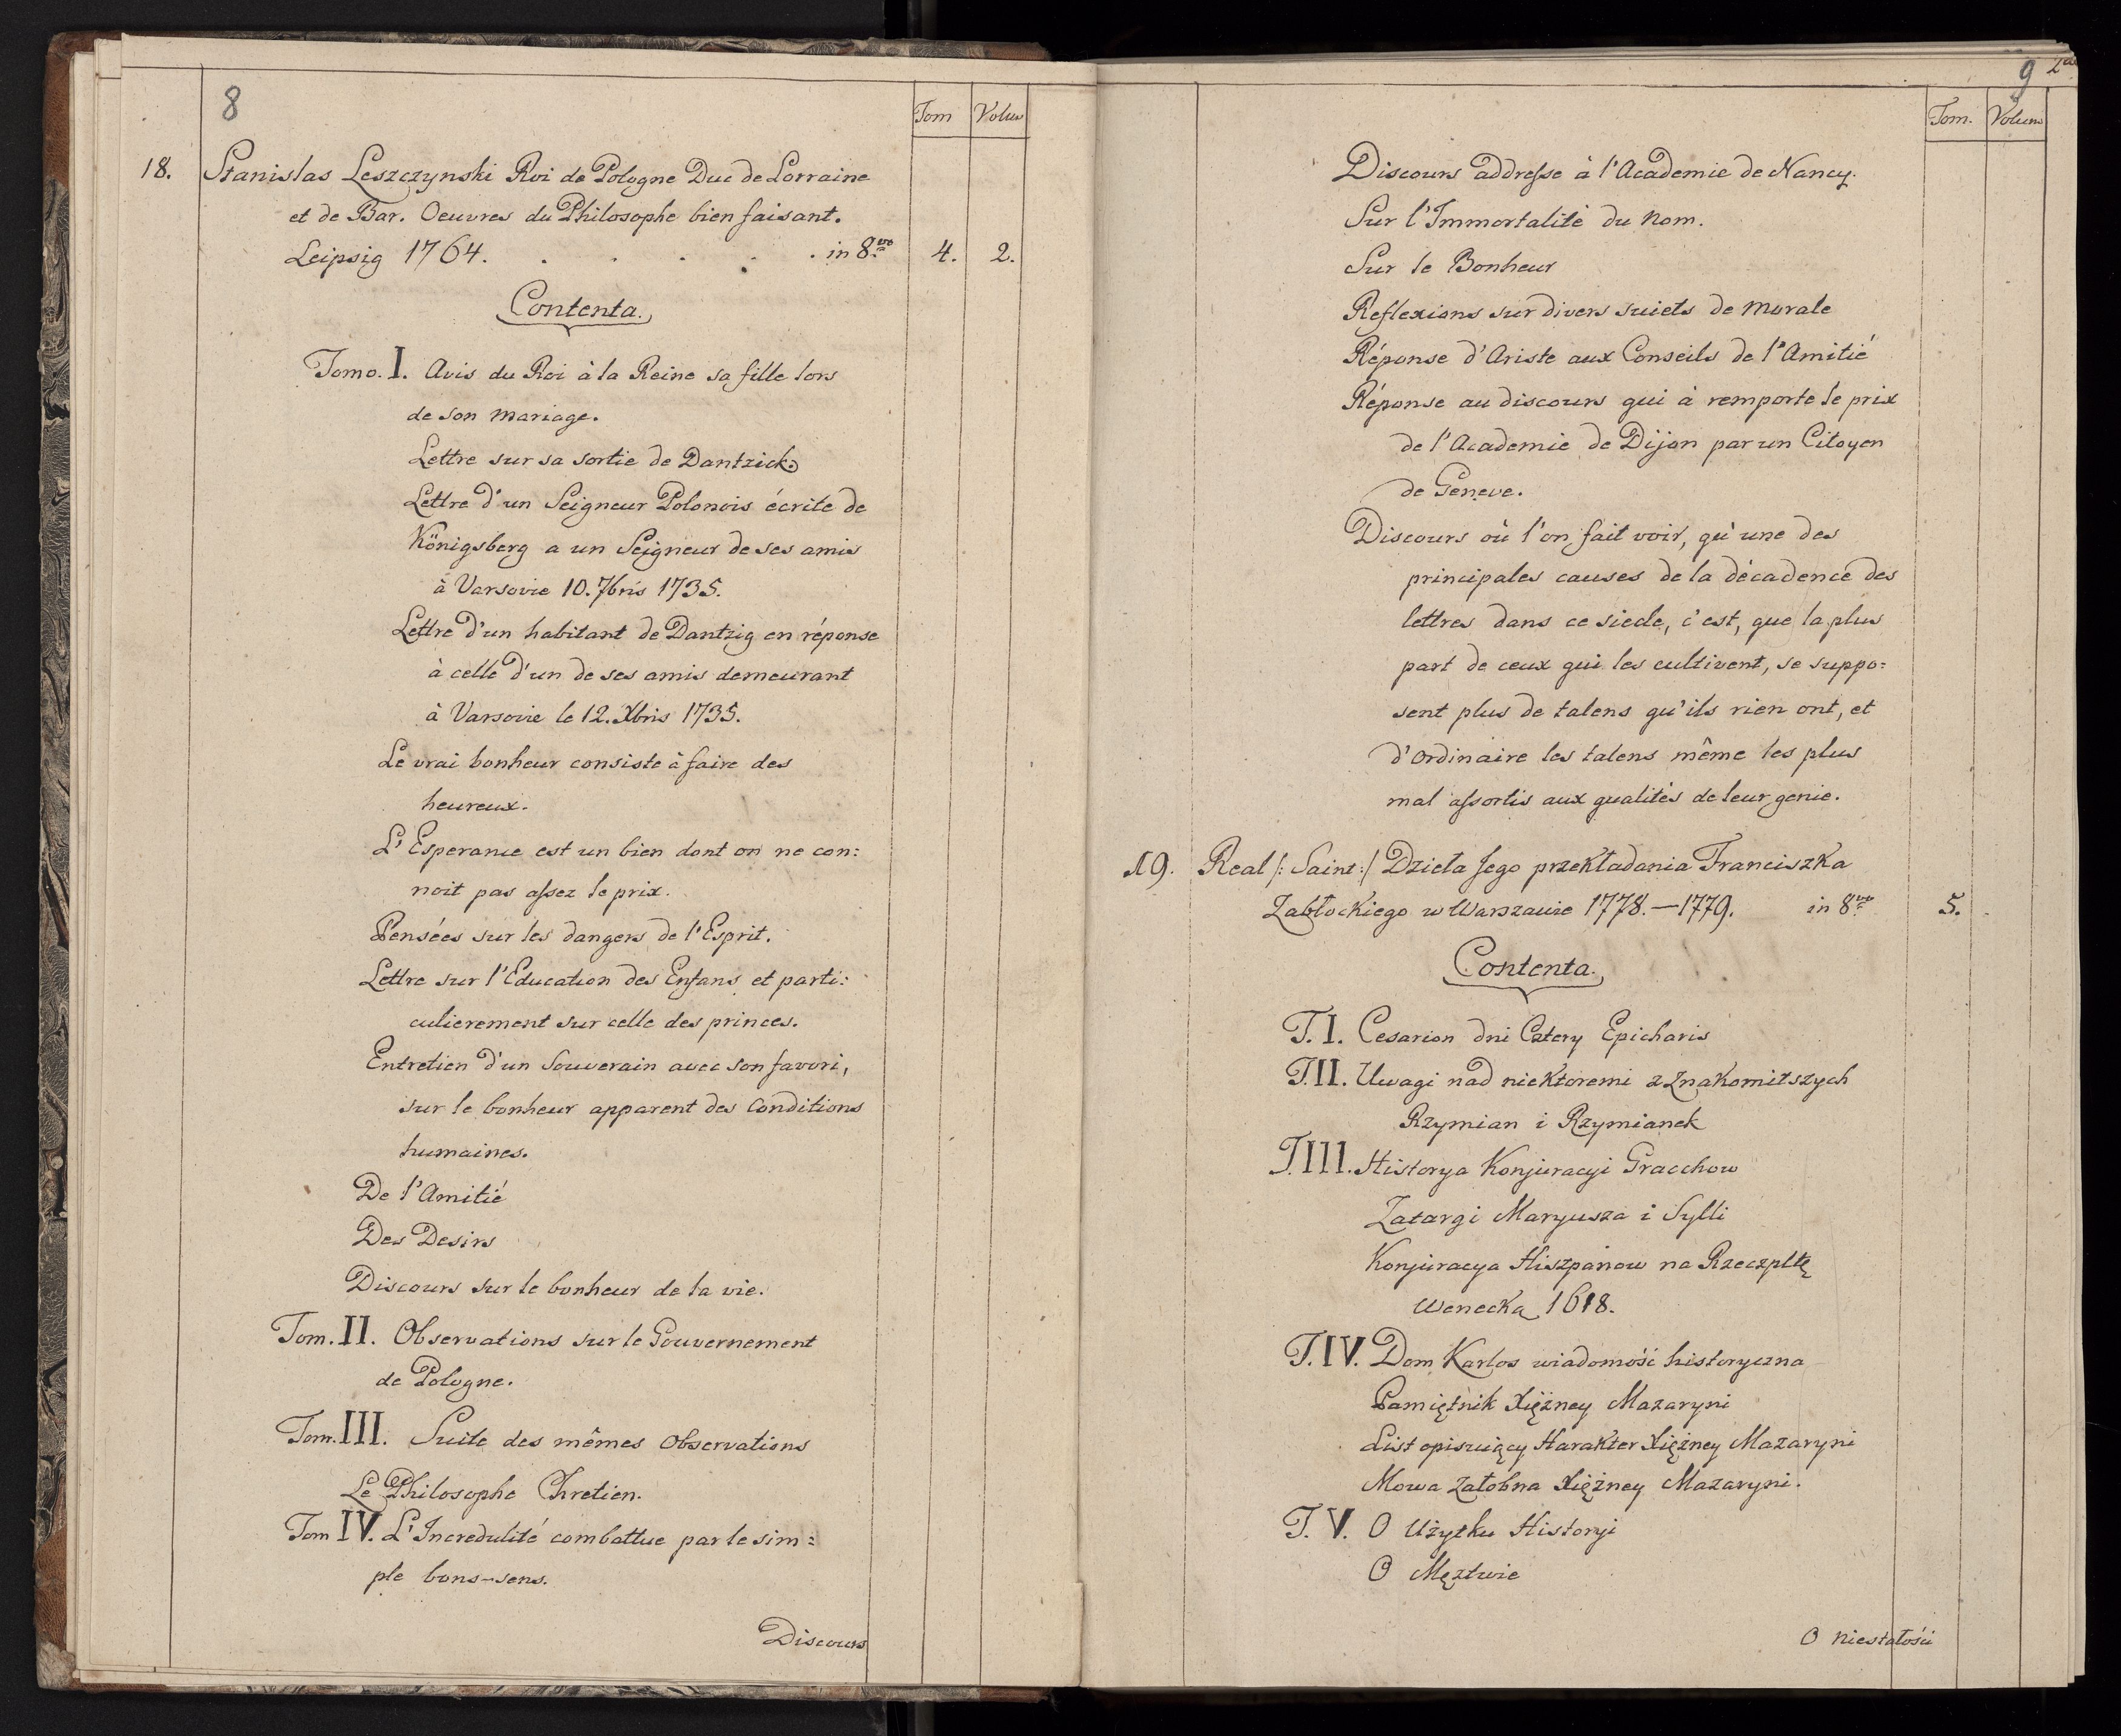 8
Tom Volum
18. Stanislas Leszczynski Roi de Pologne Duc de Lorraine
et de Bar. Oeuvres du Philosophe bien faisant.
Leipsig 1764. . . . . . in 8vo 4. 2.
Contenta.
Tomo. I. Avis du Roi à la Reine sa fille lors
de son mariage.
Lettre sur sa sortie de Dantzick.
Lettre d'un Seigneur Polonois écrite de
Königsberg a un Seigneur de ses amis
à Varsovie 10. 7bris 1735.
Lettre d'un habitant de Dantzig en réponse
à celle d'un de ses amis demeurant
à Varsovie le 12. Xbris 1735.
Le vrai bonheur consiste à faire des
heureux.
L'Esperance est un bien dont on ne con:
noit pas assez le prix.
Pensées sur les dangers de l'Esprit.
Lettre sur l'Education des Enfans et parti:
culierement sur celle des princes.
Entretien d'un Souverain avec son favori,
sur le bonheur apparent des Conditions
humaines.
De l'Amitié
Des Desirs
Discours sur le bonheur de la vie.
Tom. II. Observations sur le Gouvernement
de Pologne.
Tom. III. Suite des mêmes Observations
Le Philosophe Chretien.
Tom IV. L'Incredulité combattue par le sim:
ple bons-sens.
Discours
9
Tom. Volum
Discours addresse à l'Academie de Nancy.
Sur l'Immortalité du Nom.
Sur le Bonheur
Reflexions sur divers suiets de Morale
Réponse d'Ariste aux Conseils de l'Amitié
Réponse au discours qui à remporte le prix
de l'Academie de Dijon par un Citoyen
de Geneve.
Discours où l'on fait voir, qu'une des
principales causes de la décadence des
lettres dans ce siecle, c'est, que la plus
part de ceux qui les cultivent, se suppo:
sent plus de talens qu'ils rien ont, et
d'ordinaire les talens même les plus
mal assortis aux qualités de leur genie.
19. Real /: Saint :/ Dzieła Jego przekładania Franciszka
Zabłockiego w Warszawie 1778.—1779. in 8vo 5.
Contenta.
T. I. Cesarion dni Cztery Epicharis
T. II. Uwagi nad niektoremi z Znakomitszych
Rzymian i Rzymianek
T. III. Historya Konjuracyi Gracchow
Zatargi Maryusza i Sylli
Konjuracya Hiszpanow na Rzeczpltę
Wenecką 1618.
T. IV. Dom Karlos wiadomość historyczna
Pamiętnik Xiężney Mazaryni
List opisuięcy Harakter Xiężney Mazaryni
Mowa Załobna Xiężney Mazaryni.
T. V. O Użytku Historyi
O Męztwie
O Niestałości